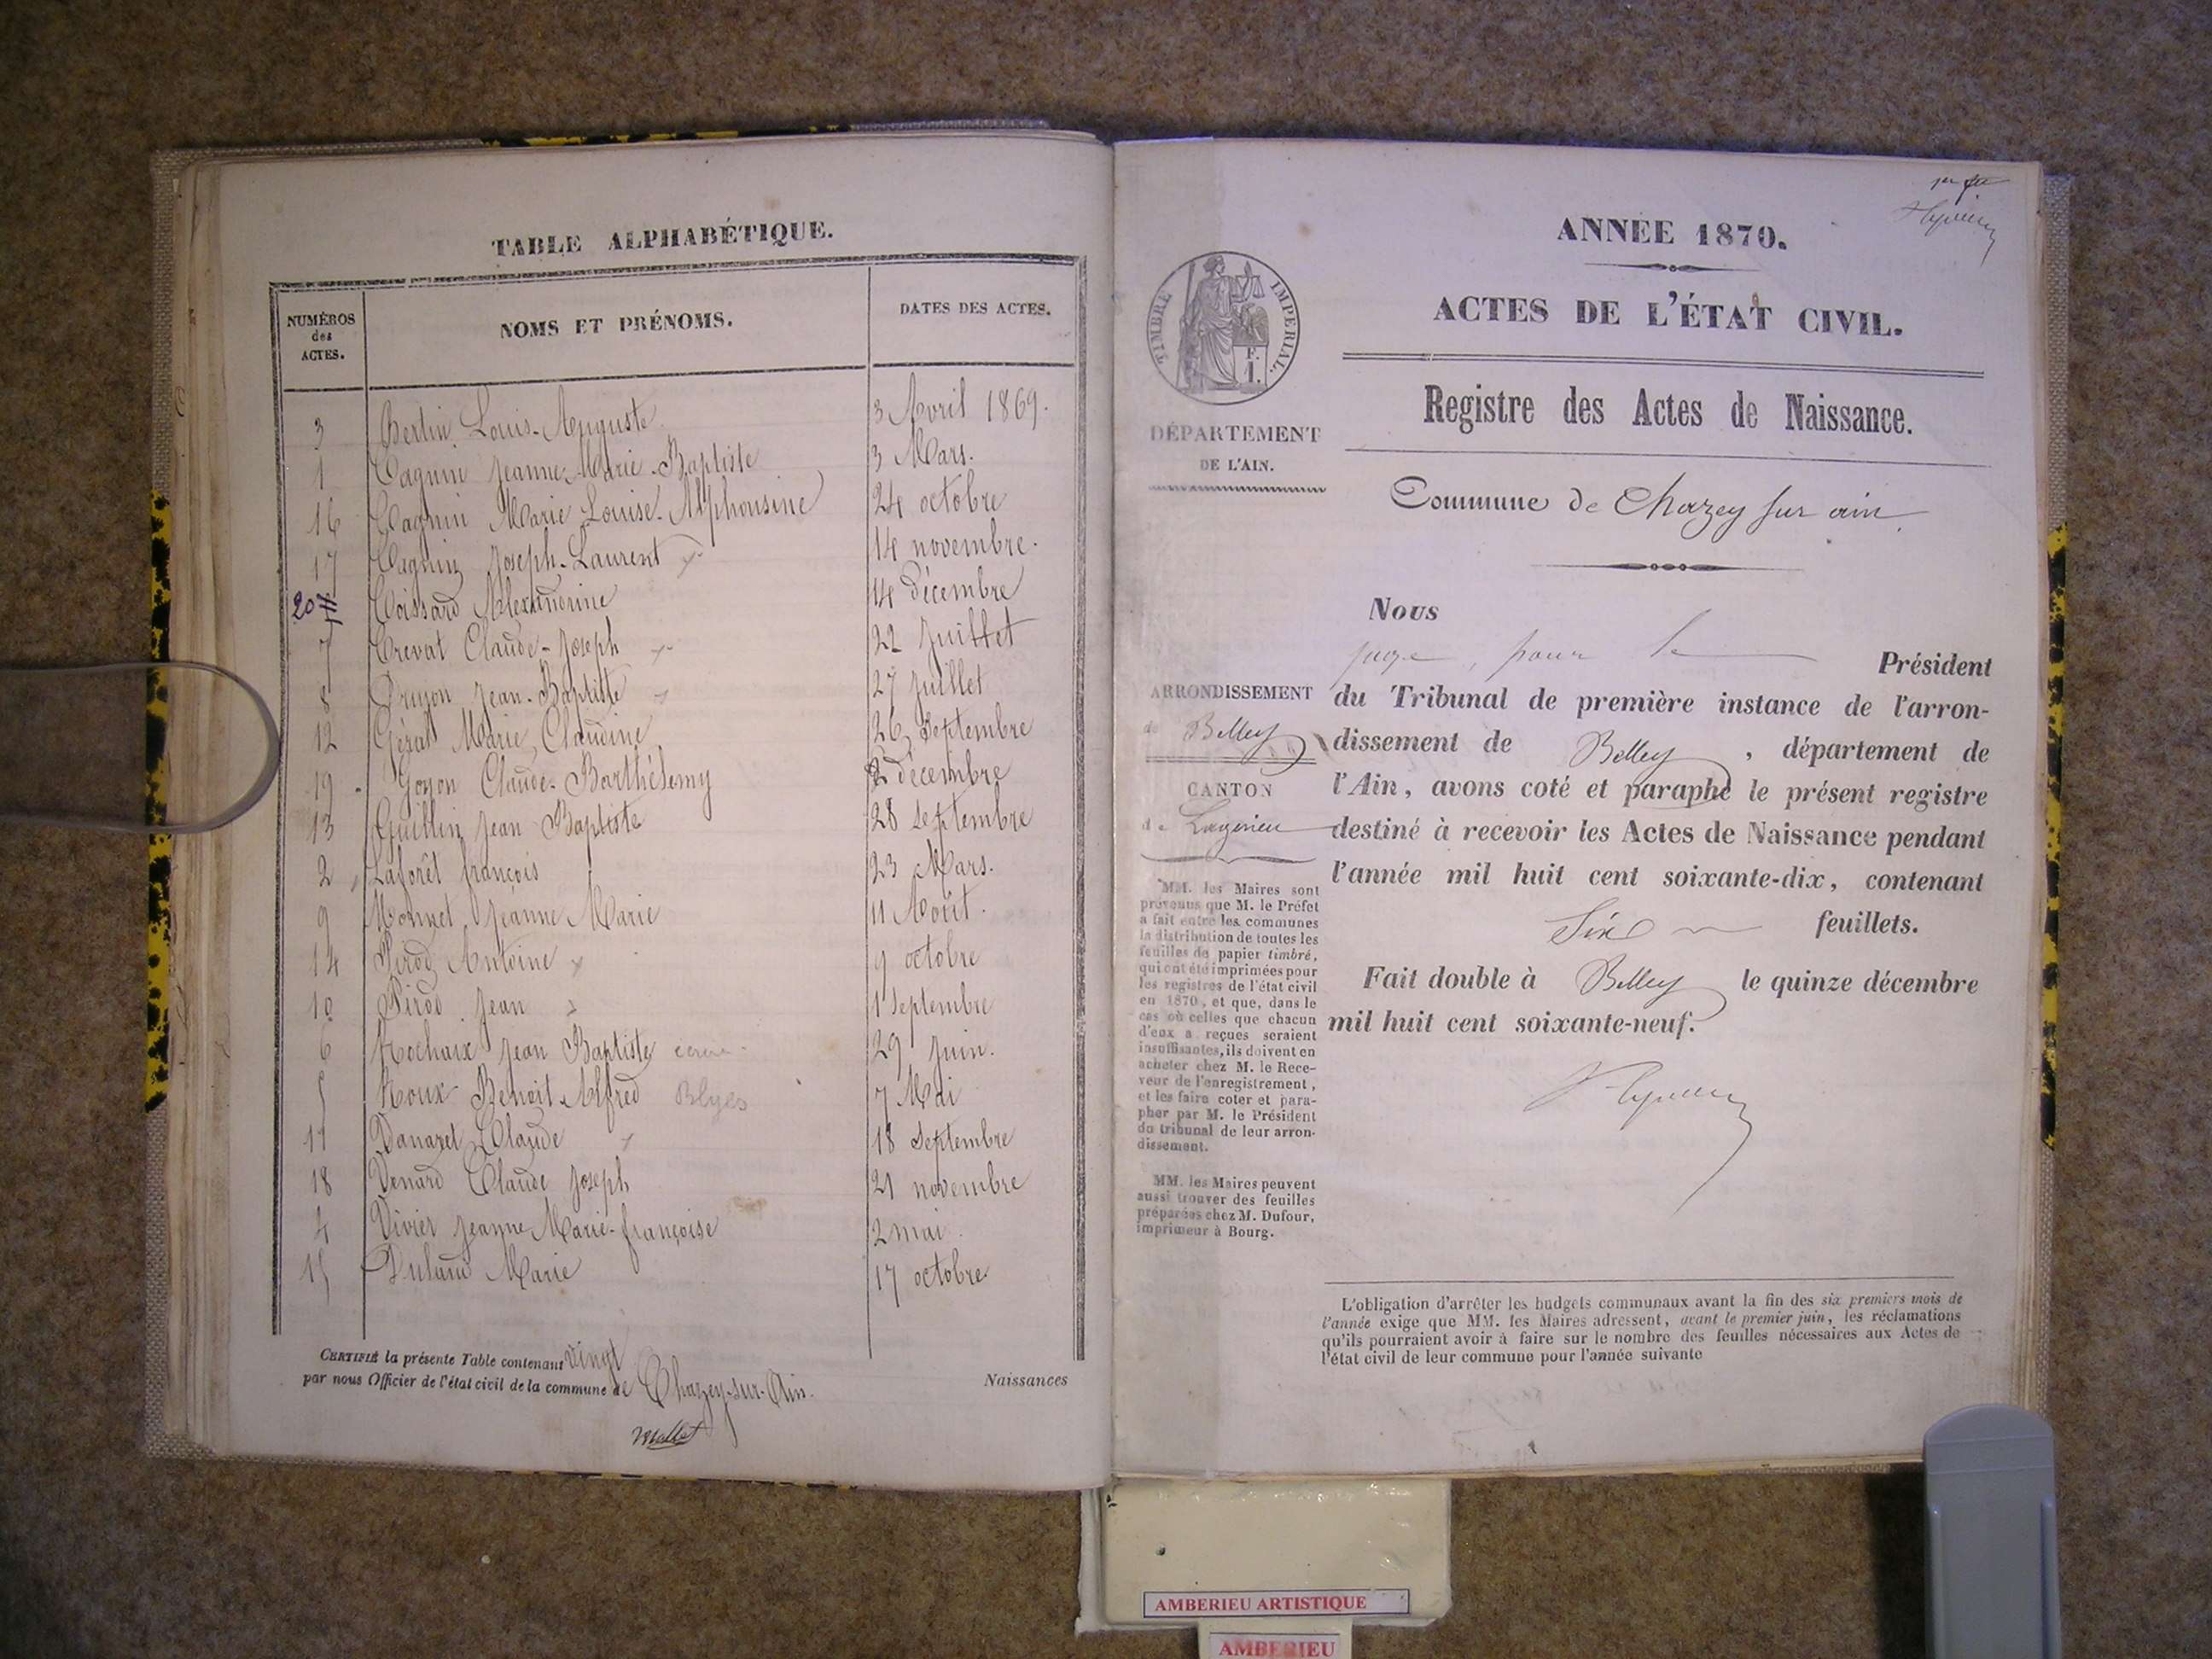 TABLE ALPHABÉTIQUE.
NUMÉROS des ACTES.
NOMS ET PRÉNOMS.
DATES DES ACTES.
3 Bertin Louis-Auguste 3 Avril 1869.
1 Cagnin Jeanne-Marie-Baptiste 3 Mars.
16 Cagnin Marie Louise-Alphonsine 24 octobre
17 Cagnin Joseph-Laurent 14 novembre.
20 Coissard Alexandrine 14 décembre
7 Crevat Claude-Joseph 22 Juillet
8 Druyon Jean-Baptiste 27 Juillet
12 Marie Claudine 26 Septembre
19 Goyon Claude-Barthélemy 2 décembre
13 Guillin Jean Baptiste 28 septembre
2 Laforêt françois 23 Mars.
9 Monnet Jeanne Marie 11 Août.
14 Pirod Antoine 9 octobre
10 Pirod Jean 1 Septembre
6 Rochaix Jean Baptiste 29 Juin.
5 Roux Benoit-Alfred Blyes 7 Mai
11 Vanaret Claude 18 Septembre
18 Venard Claude Joseph 21 novembre
4 Vivier Jeanne Marie-françoise 2 mai
15 Marie 17 octobre
CERTIFIÉ la présente Table contenant vingt Naissances
par nous Officier de l'état civil de la commune de Chazey-sur-Ain.
Mallet
ANNÉE 1870.
ACTES DE L'ÉTAT CIVIL.
TIMBRE IMPERIAL.
F.
1.
Registre des Actes de Naissance.
DÉPARTEMENT
DE L'AIN.
Commune de Chazey sur ain
Nous
juge, pour le Président
du Tribunal de première instance de l'arron-
dissement de Belley, département de
l'Ain, avons coté et paraphé le présent registre
destiné à recevoir les Actes de Naissance pendant
l'année mil huit cent soixante-dix, contenant
Six feuillets.
Fait double à Belley le quinze décembre
mil huit cent soixante-neuf.
ARRONDISSEMENT
de Belley
CANTON
de Lagnieu
MM. les Maires sont
prévenus que M. le Préfet
a fait entre les communes
la distribution de toutes les
feuilles de papier timbré,
qui ont été imprimées pour
les registres de l'état civil
en 1870, et que, dans le
cas où celles que chacun
d'eux a reçues seraient
insuffisantes, ils doivent en
acheter chez M. le Rece-
veur de l'enregistrement,
et les faire coter et para-
pher par M. le Président
du tribunal de leur arron-
dissement.
MM. les Maires peuvent
aussi trouver des feuilles
préparées chez M. Dufour,
imprimeur à Bourg.
L'obligation d'arrêter les budgets communaux avant la fin des six premiers mois de
l'année exige que MM. les Maires adressent, avant le premier juin, les réclamations
qu'ils pourraient avoir à faire sur le nombre des feuilles nécessaires aux Actes de
l'état civil de leur commune pour l'année suivante
AMBERIEU ARTISTIQUE
AMBERIEU